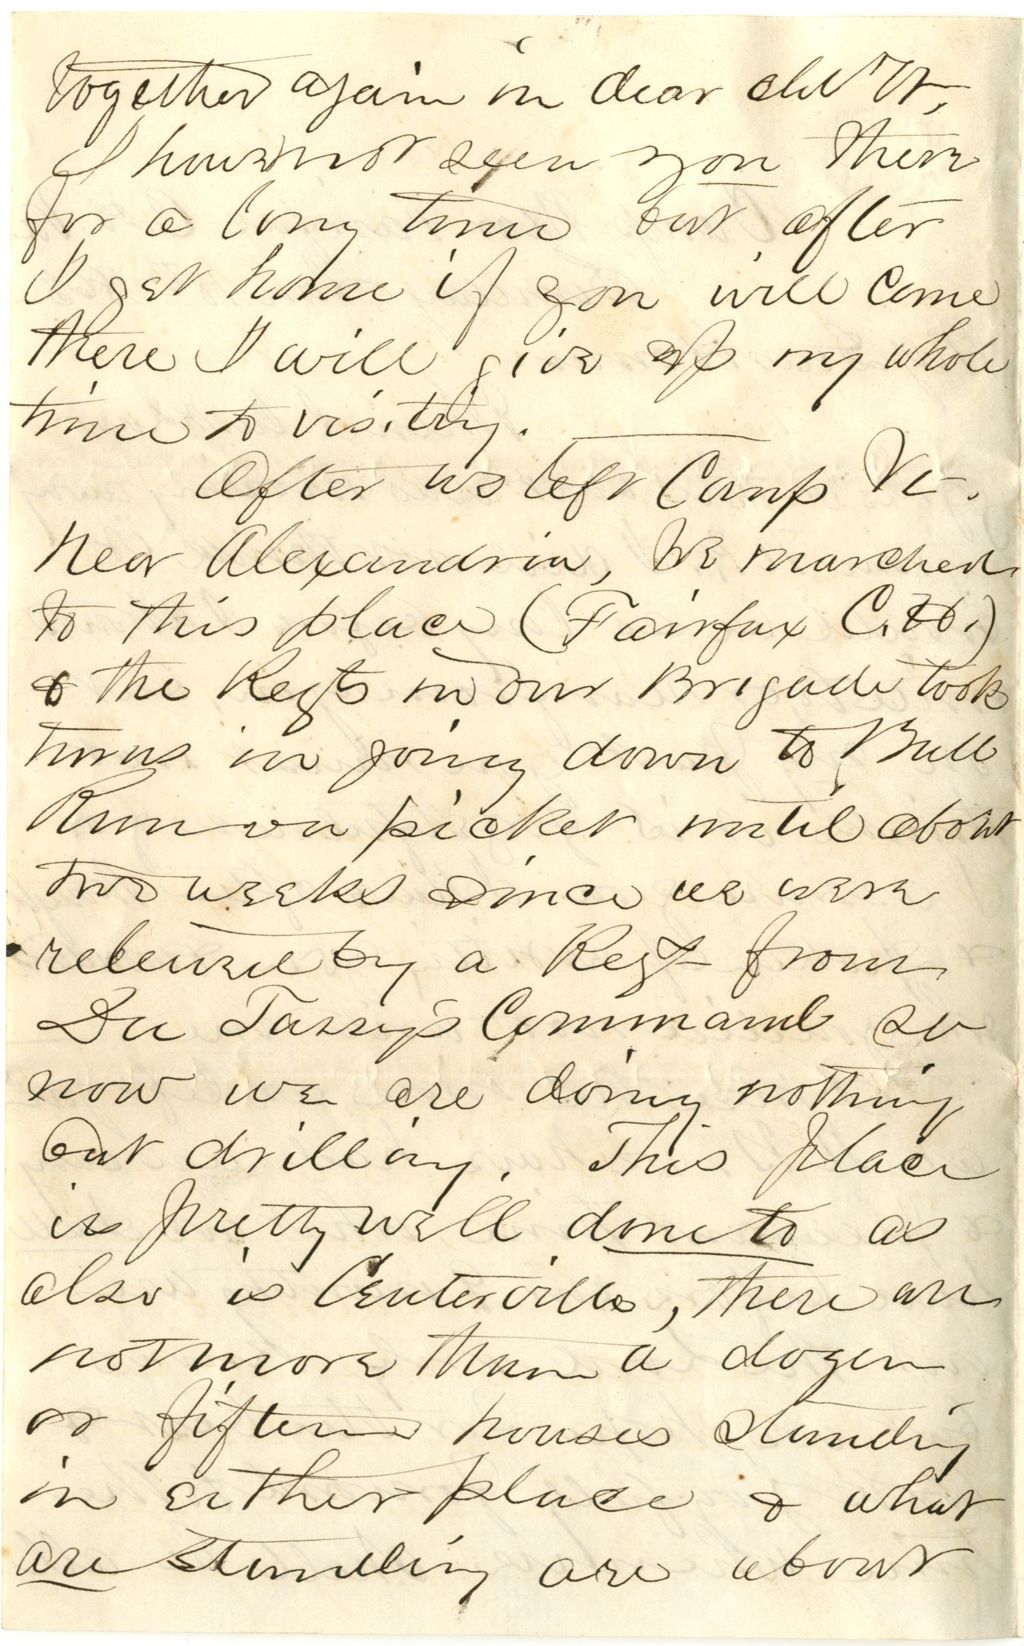 together again in dear old Vt,
I have not seen you there
for a long time but after
I get home if you will come
there I will give up my whole
time to visiting.
After we left Camp Vt.
near Alexandria, We marched
to this place (Fairfax C.H.)
& the Regts in our Brigade took
turns in going down to Bull
Run on picket until about
two weeks since we were
releived by a Regt from
Command so
now we are doing nothing
but drilling. This place
is pretty well done to as
also is Centerville, there are
not more than a dozen
or fifteen houses standing
in either place & what
are standing are about